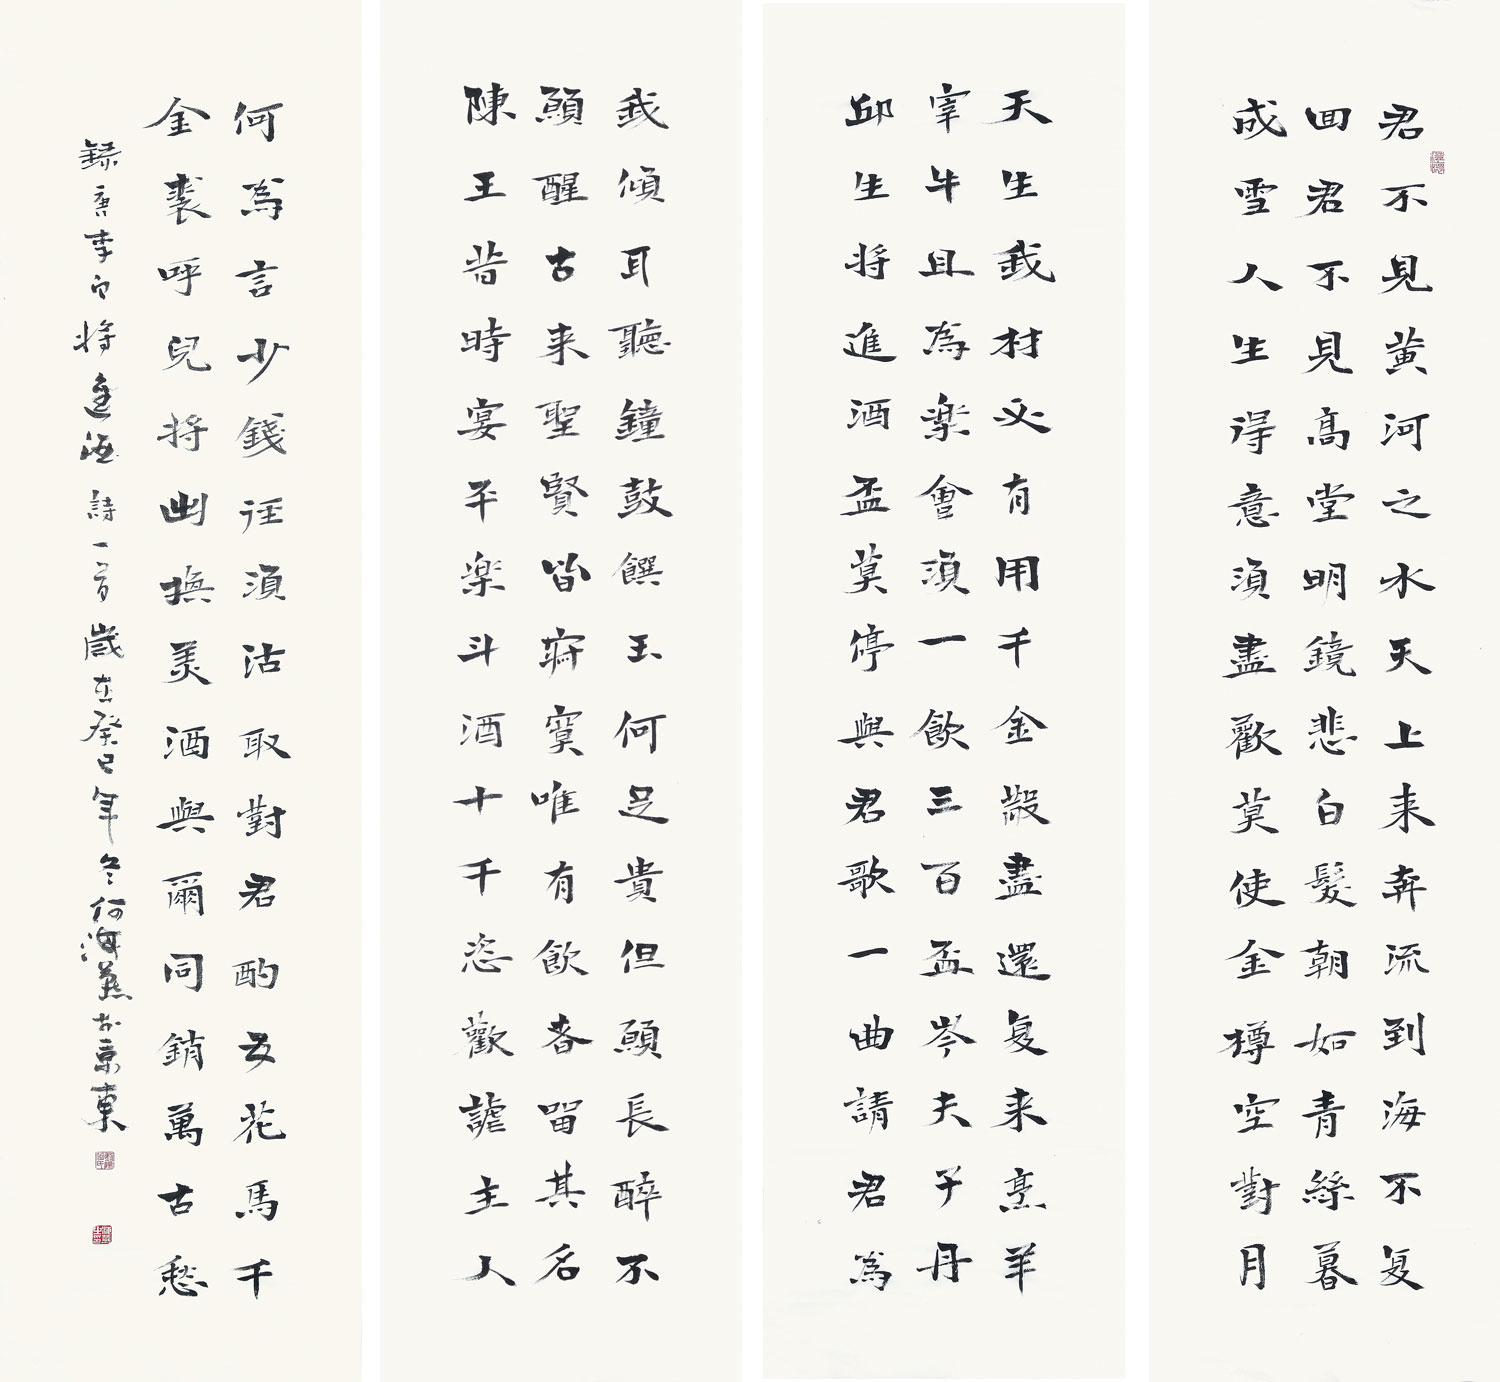 君不見黄河之水天上来奔流到海不复
回君不見高堂明鏡悲白髮朝如青絲暮
成雪人生得意須盡歡莫使金樽空對月
天生我材必有用千金散盡還复来烹羊
宰牛且為樂會須一飲三百盃岑夫子丹
邱生將進酒盃莫停與君歌一曲請君為
我傾耳聽鐘鼓饌玉何足貴但願長醉不
願醒古来聖賢皆寂寞唯有飲者留其名
陳王昔時宴平樂斗酒十千恣歡謔主人
何為言少錢徑須沽取對君酌五花馬千
金裘呼兒將出換美酒與爾同銷萬古愁
録唐李白將進酒詩一首歲在癸巳年冬何海燕於京東